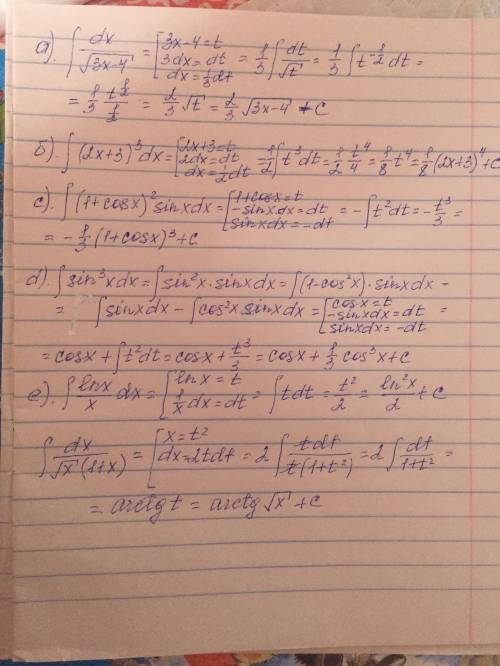 а). ∫ dx/√(3x-4) = [3x-4=t; 3dx=dt; dx=1/3 dt = 1/3 ∫ dt/√t = 1/3 ∫ t^(-1/2) dt =
= 1/3 t^(1/2)/(1/2) = 2/3 √t = 2/3 √(3x-4) + C
б). ∫ (2x+3)³ dx = [2x+3=t; 2dx=dt; dx=1/2 dt = 1/2 ∫ t³ dt = 1/2 t⁴/4 = 1/8 t⁴ = 1/8 (2x+3)⁴ + C
c). ∫ (1+cosx)² sinx dx = [1+cosx=t; -sinx dx=dt; sinx dx=-dt = -∫ t² dt = -t³/3 =
= -1/3 (1+cosx)³ + C
d). ∫ sin³x dx = ∫ sin²x · sinx dx = ∫ (1-cos²x) · sinx dx -
= ∫ sinx dx - ∫ cos²x sinx dx = [cosx=t; -sinx dx=dt; sinx dx=-dt =
= cosx + ∫ t² dt = cosx + t³/3 = cosx + 1/3 cos³x + C
e). ∫ lnx/x dx = [lnx=t; 1/x dx=dt = ∫ t dt = t²/2 = ln²x/2 + C
∫ dx/(√x (1+x)) = [x=t²; dx=2tdt = 2 ∫ tdt/(t(1+t²)) = 2 ∫ dt/(1+t²) =
= arctg t = arctg √x + C